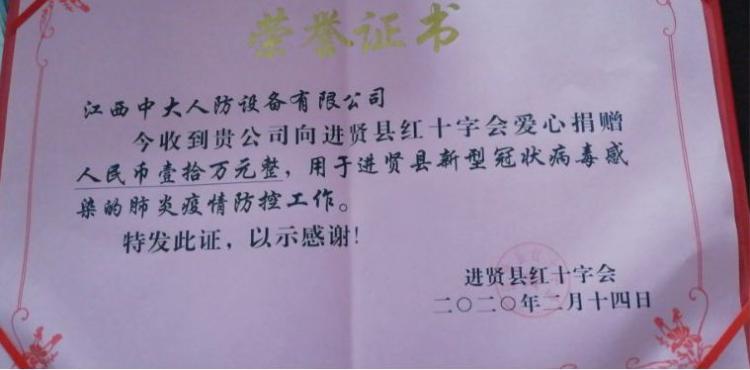 荣誉证书
江西中大人防设备有限公司
今收到贵公司向进贤县红十字会爱心捐赠
人民币壹拾万元整，用于进贤县新型冠状病毒感
染的肺炎疫情防控工作。
特发此证，以示感谢！
进贤县红十字会
二〇二〇年二月十四日